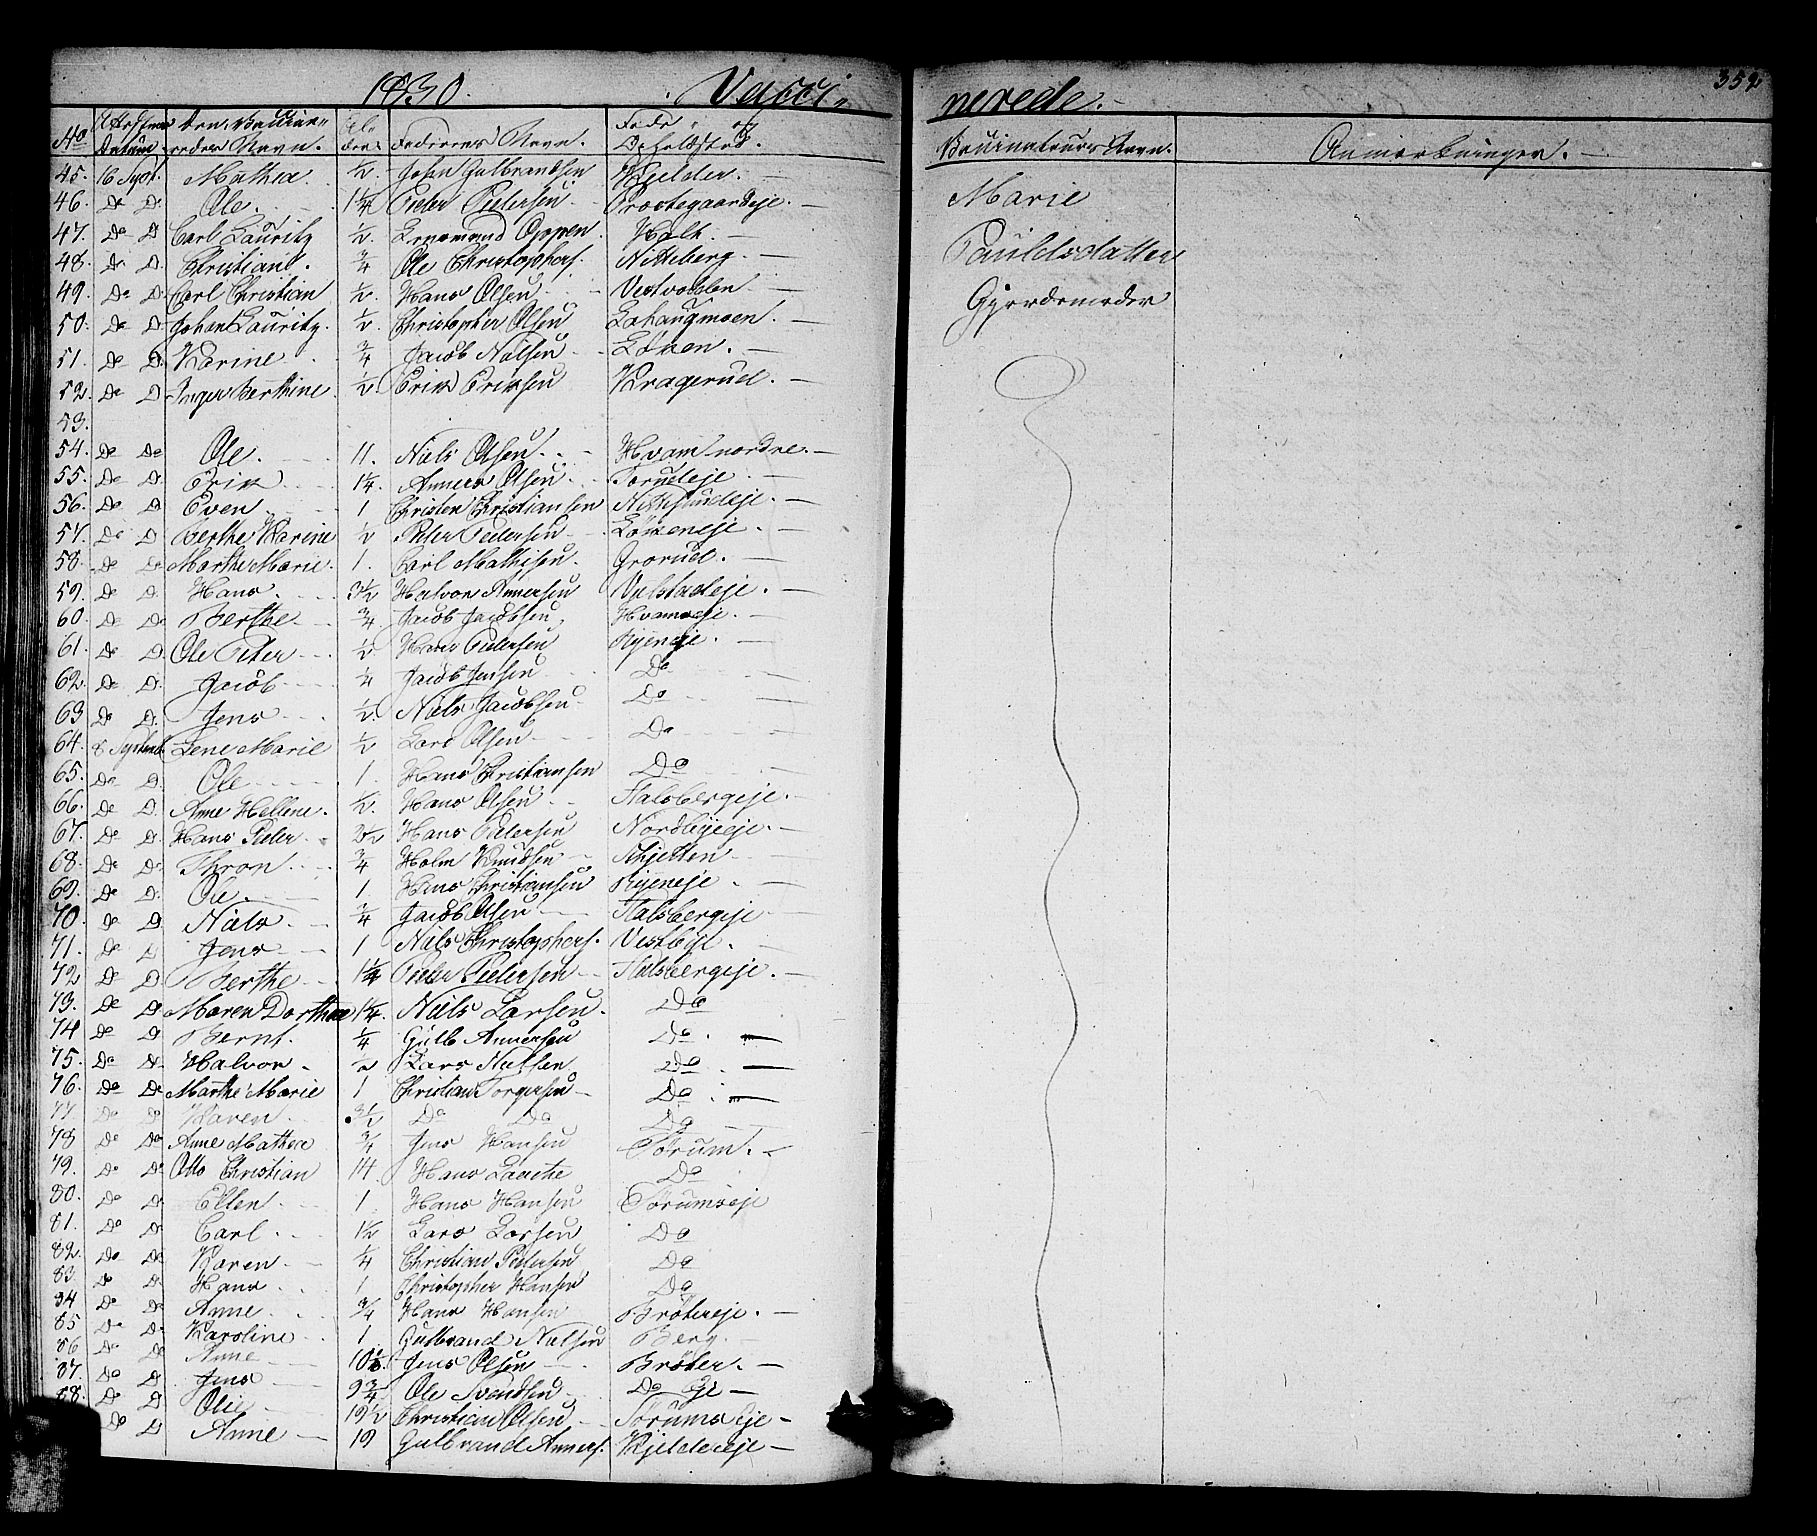 1830. Vacci-
nerede.-
352
No
Attestens Datum. Den Vaccineredes Navn. Alder. Faderens Navn. Føde- og Opholdsted. Vaccinateurs Navn. Anmærkninger.
45. 16 Sept. Mathea. 1/2 John Gulbrandsen Kjelder. Marie
46. Do Do Ole. 1 1/4 Peder Pedersen Prostegaardeje.
47. Do D Carl Lauritz 1/2. Oppen. Holt. Pauldsdatter
48. Do D. Christiane. 3/4 Ole Christophers. Nitteberg.
49. Do D. Carl Christian 1/2. Hans Olsen Vestvolden Gjerdemoder
50. Do D. Johan Lauritz. 1/2 Christopher Olsen Lahaugmoen.
51. Do D. Karine 3/4 Jacob Nilsen Løken.
52. Do D Inger Berthine. 1/2 Erik Eriksen Kragerud.
53.
54. Do Do Ole. 11. Niels Olsen. Hvam nordre.
55. Do D. Erik 1 1/4. Anners Olsen Torudeje
56. Do D Even 1 Christen Christiansen Nittesundeje.
57. Do D. Berthe Karine 1/2 Peter Pedersen Løkeneje.
58. Do Do Marthe Marie. 1. Carl Mathisen. Grorud.
59. Do D. Hans. 3 1/2 Halvor Annersen Vilstadeje.
60. Do Do Berthe 3/4 Jacob Jacobsen, Hvamseje
61. Do D. Ole Peter 1/2 Hans Pedersen Ryeneje.
62. Do D. Jacob 1/4 Jacob Jensen Do
63 Do D. Jens 1/2. Niels Jacobsen Do
64. 8 Septemb. Lene Marie 1/2 Lars Olsen Do
65. Do D. Ole 1. Hans Christiansen Do
66. Do D. Anne Hellene. 1/2. Hans Olsen Stalsbergeje.
67. Do D. Hans Peter 3 1/2 Hans Pedersen Nordbyeeje.
68. Do D. Thron 3/4 Holm Knudsen Schjetten
69. Do D. Ole 1 Hans Christiansen Ryeneje.
70. Do D Niels. 3/4 Jacob Olsen Stalsbergeje
71. Do D Jens 1 Niels Christophers. Vestbye.
72 Do D Berthe 1 1/4 Peder Pedersen Stalsbergeje.
73. Do D Maren Dorthea 1 1/4. Niels Larsen. Do
74 Do D Bernt. 1/4 Gulb Annersen Do.
75. Do D. Halvor 1/2 Lars Nielsen Do.
76. Do Do Marthe Marie 1 Christian Torgersen Do.
77. Do Do Karen 3 1/2 Do Do Do
78 Do Do Anne Mathea 3/4 Jens Hansen Sørum.
79. Do D. Otto Christian 14. Hans Laache Do
80. Do D. Ellen 1 Hans Hansen Sørumseje
81. Do D. Carl 1 1/2 Lars Larsen Do
82. Do Do Karen 1/4 Christian Pedersen Do
83 Do D. Hans 1 Christopher Hansen Do
84 Do Do Anne 3/4 Hans Hansen Brøtereje.
85 Do Do Karoline 1 Gulbrand Nielsen Berg.
86 Do Do Anne Jens Olsen Brøter.
87. Do D. Jens 9 3/4 Ole Svendsen Do Eje
88. Do D Olie 19 1/2 Christian Olsen Sørums Eje
Do D Anne 19 Gulbrand Anners. Kjeldereje